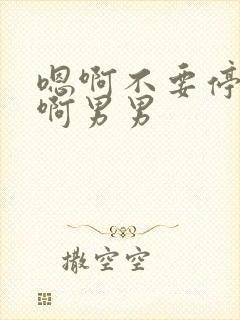 嗯啊不要停
啊男男
撒空空